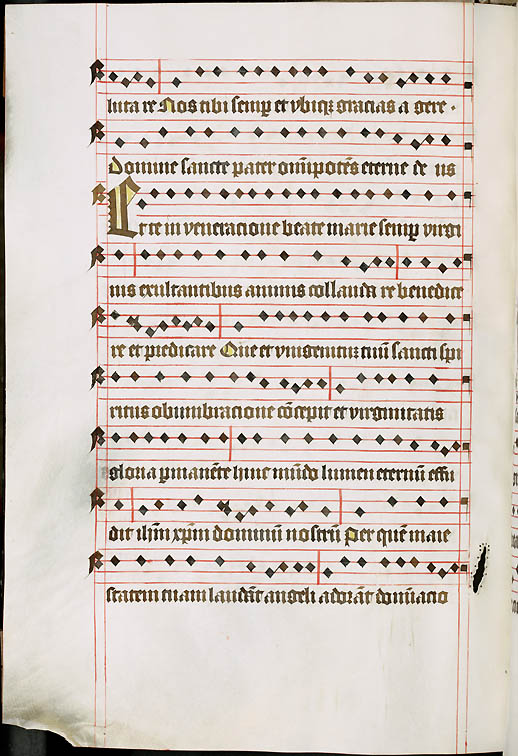 luta re Nos tibi semp et vbiqz gracias a gere .
Domine sancte pater om̄ipotēs eterne de us
Et te in veneracione beate marie semp virgi
nis exultantibus animis collauda re benedice
re et predicare Que et vnigenitū tuū sancti spi
ritus obumbracione cōcepit et virginitatis
gloria pmanēte huic mūdo lumen eternū effu
dit ihm̄ xpm̄ dominū nostrū Per quē maie
statem tuam laudāt angeli adorāt dominacio